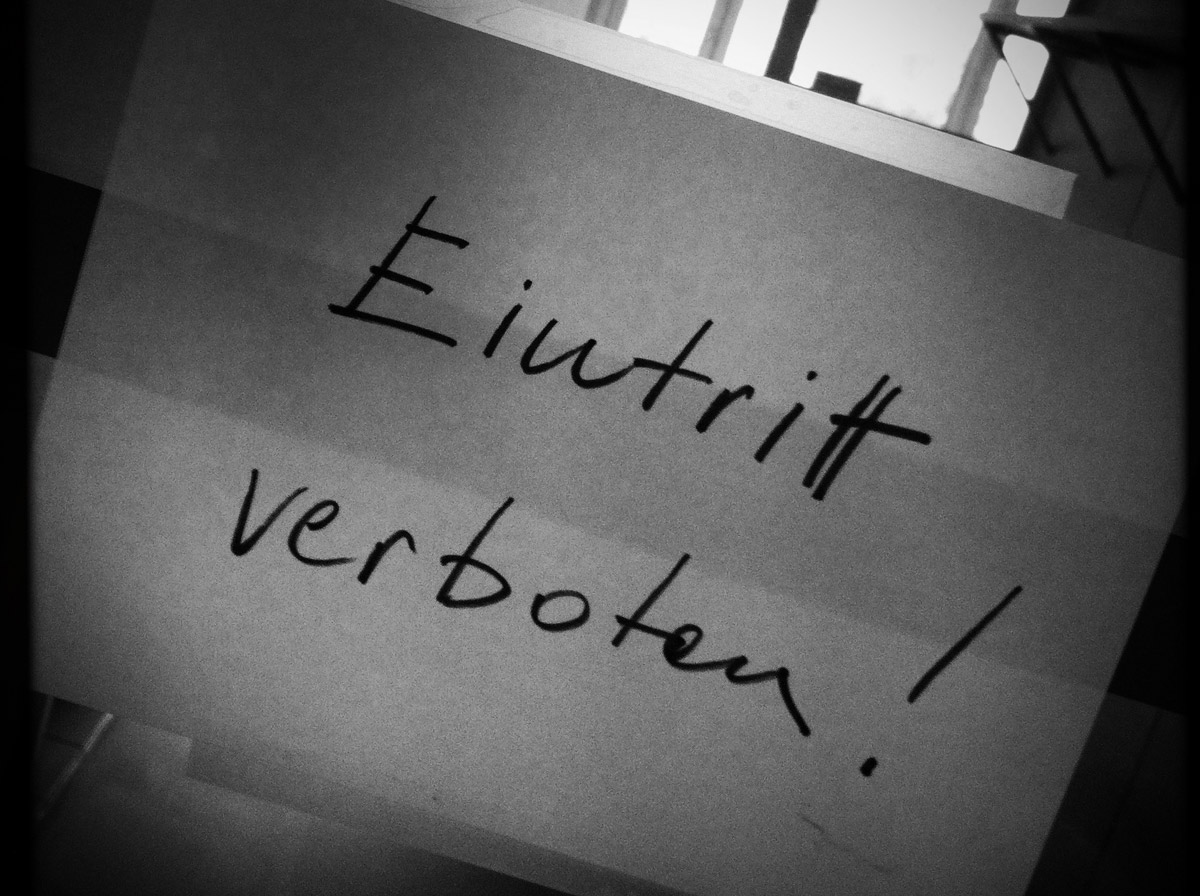 Eintritt
verboten!